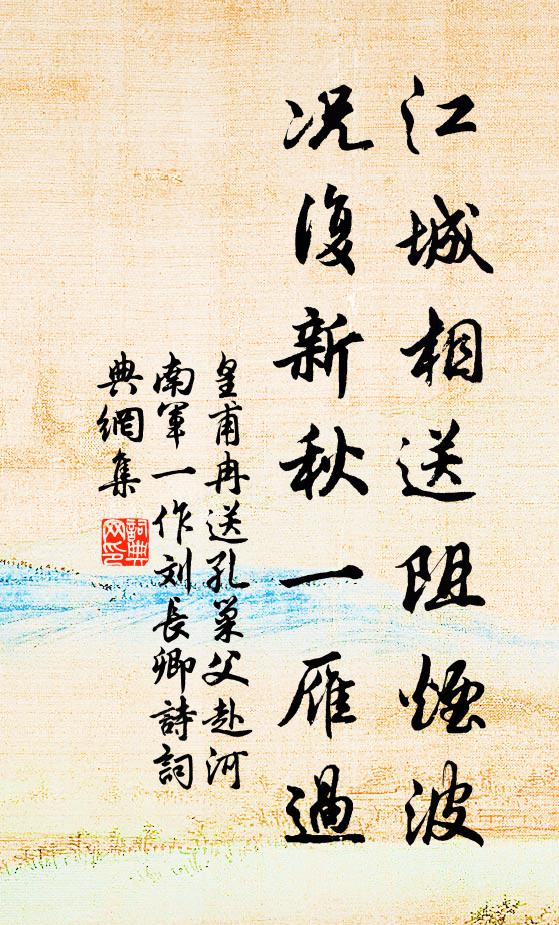 江城相送阻煙波
况復新秋一雁過
皇甫冉送孔巢父赴河
南軍一作刘長卿詩詞
典網集
詞典網印